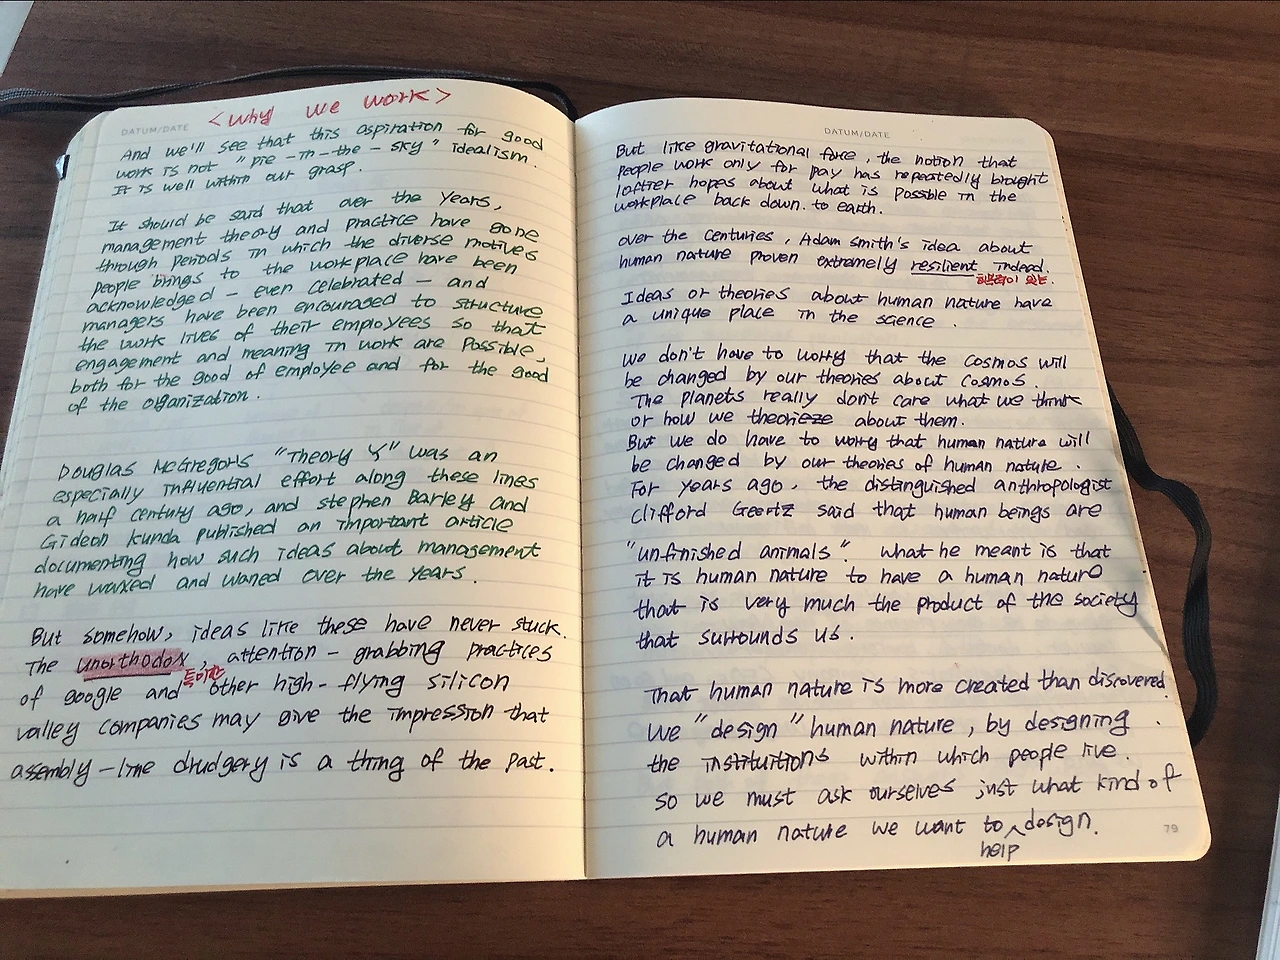 DATUM/DATE
<Why we work>
And we'll see that this aspiration for good
work is not "pie-in-the-sky" idealism.
It is well within our grasp.
It should be said that over the years,
management theory and practice have gone
through periods in which the diverse motives
people brings to the workplace have been
acknowledged - even celebrated - and
managers have been encouraged to structure
the work lives of their employees so that
engagement and meaning in work are possible,
both for the good of employee and for the good
of the organization.
Douglas McGregor's "Theory Y" was an
especially influential effort along these lines
a half century ago, and stephen Barley and
Gideon Kunda published an important article
documenting how such ideas about management
have waxed and waned over the years.
But somehow, ideas like these have never stuck.
The unorthodox, attention-grabbing practices
특이한
of google and other high-flying silicon
valley companies may give the impression that
assembly-line drudgery is a thing of the past.
DATUM/DATE
But like gravitational force, the notion that
people work only for pay has repeatedly brought
loftier hopes about what is possible in the
workplace back down. to earth.
over the centuries, Adam smith's idea about
human nature proven extremely resilient indeed.
회복력이 있는
Ideas or theories about human nature have
a unique place in the science.
we don't have to worry that the cosmos will
be changed by our theories about cosmos.
The planets really don't care what we think
or how we theorieze about them.
But we do have to worry that human nature will
be changed by our theories of human nature.
For years ago, the distinguished anthropologist
Clifford Geertz said that human beings are
"unfinished animals". what he meant is that
it is human nature to have a human nature
that is very much the product of the society
that surrounds us.
That human nature is more created than discovered.
We "design" human nature, by designing
the instituitions within which people live.
so we must ask ourselves just what kind of
a human nature we want to design.
help
79